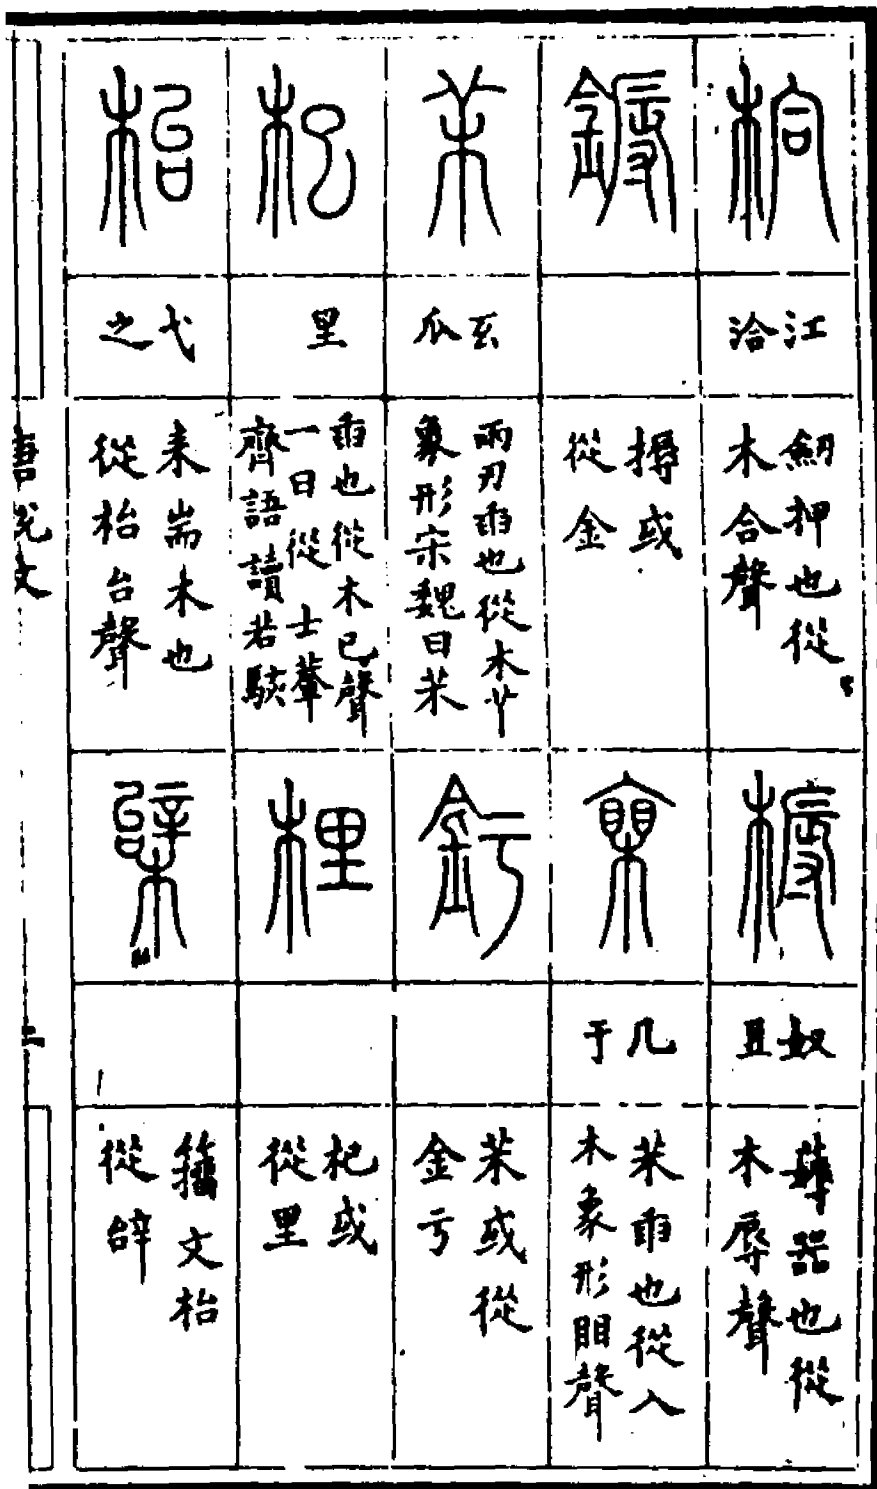 㭘
江
洽
劒押也從
木合聲
槈
奴
豆
薅器也從
木辱聲
鎒
搙或
從金
几
于
苿臿也從入
木象形䀠聲
苿
玄
瓜
兩刃臿也從木丷
象形宋魏曰苿
釫
苿或從
金亏
杞
里
臿也從木已聲
一曰從士輂
齊語讀若駭
梩
杞或
從里
枱
弋
之
耒耑木也
從枱台聲
籀文枱
從辝
唐說文
二